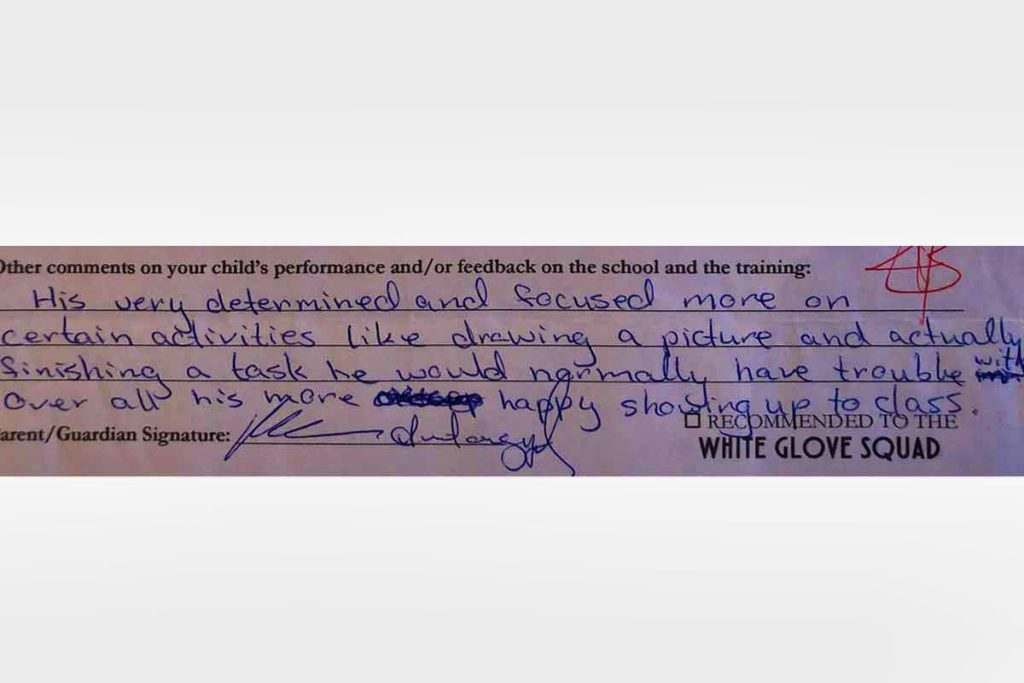 Other comments on your child's performance and/or feedback on the school and the training:
His very determined and focused more on
certain activities like drawing a picture and actually
finishing a task he would normally have trouble with
over all his more happy showing up to class.
arent/Guardian Signature:
☐ RECOMMENDED TO THE
WHITE GLOVE SQUAD